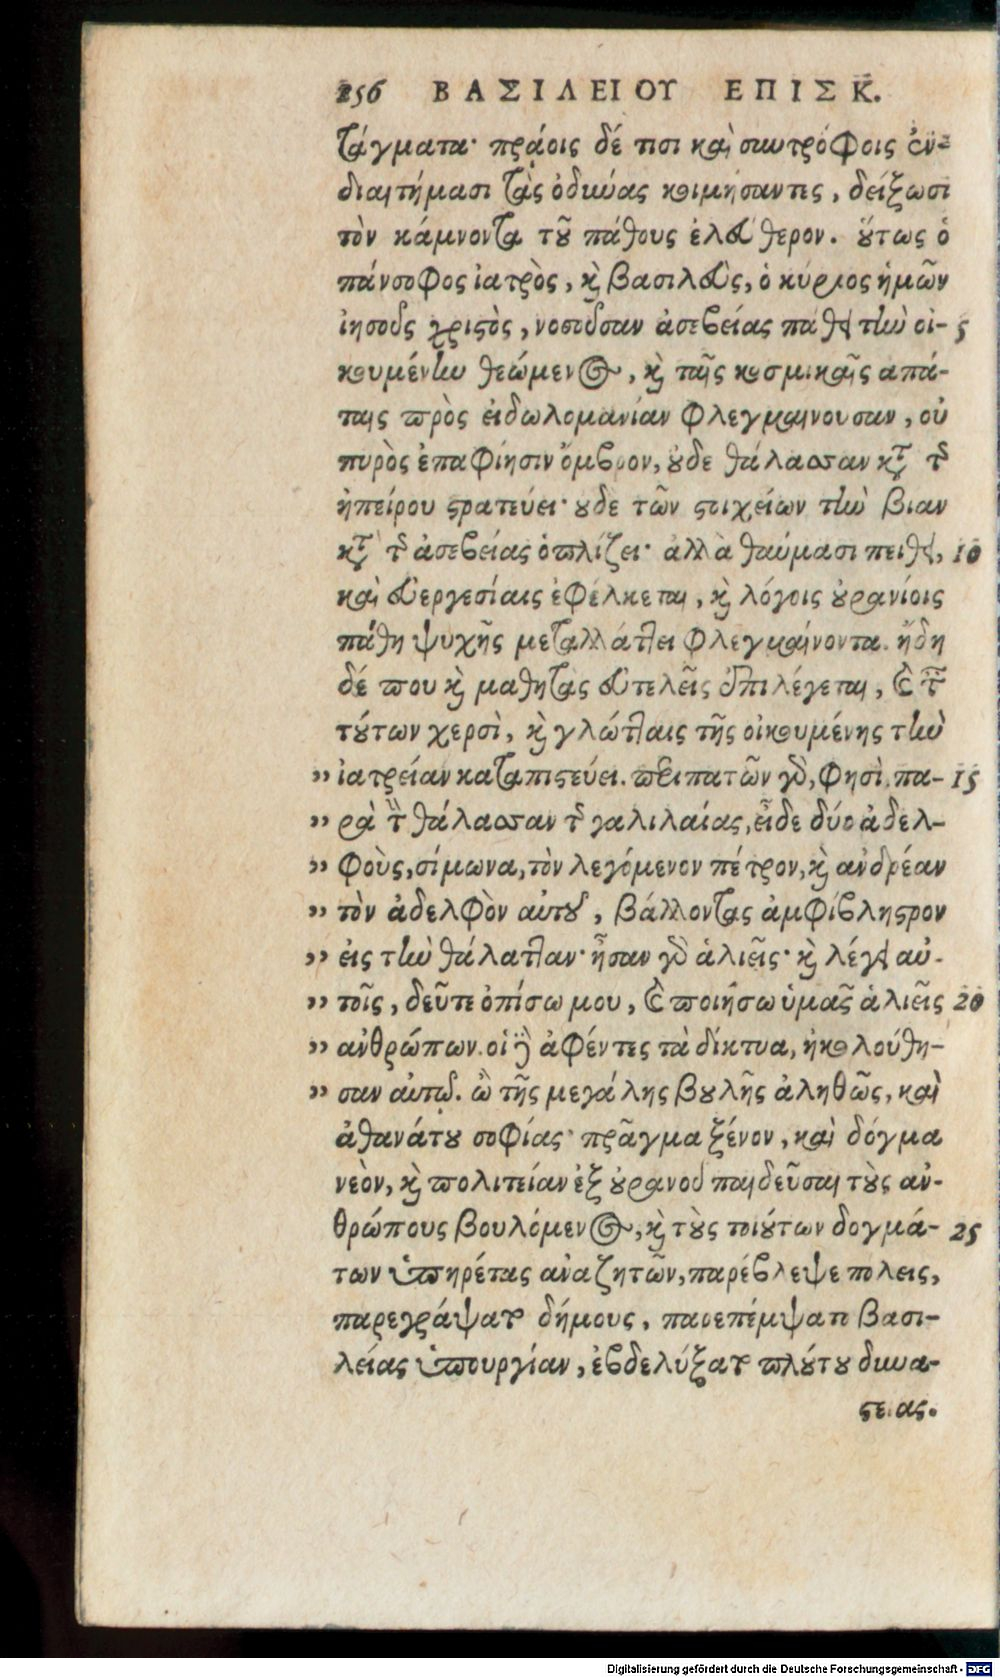 256 ΒΑΣΙΛΕΙΟΥ ΕΠΙΣΚ.
τάγματα· πράοις δέ τισι καὶ συντρόφοις ἐν-
διαιτήμασι τὰς ὀδύνας κοιμήσαντες, δείξωσι
τὸν κάμνοντα τοῦ πάθους ἐλεύθερον. οὕτως ὁ
πάνσοφος ἰατρὸς, καὶ βασιλεὺς, ὁ κύριος ἡμῶν
ἰησοῦς χριστὸς, νοσοῦσαν ἀσεβείας πάθει τὴν οἰ- 5
κουμένην θεώμενος, καὶ ταῖς κοσμικαῖς απά-
ταις πρὸς εἰδωλομανίαν φλεγμαίνουσαν, οὐ
πυρὸς ἐπαφίησιν ὄμβρον, οὐδε θάλασσαν κατὰ τῆς
ἠπείρου στρατεύει· οὐδε τῶν στοιχείων τὴν βιαν
κατὰ τῆς ἀσεβείας ὁπλίζει· ἀλλὰ θαύμασι πείθει, 10
καὶ εὐεργεσίαις ἐφέλκεται, καὶ λόγοις οὐρανίοις
πάθη ψυχῆς μεταλλάττει φλεγμαίνοντα. ἤδη
δέ που καὶ μαθητὰς εὐτελεῖς ἐπιλέγεται, καὶ ταῖς
τούτων χερσὶ, καὶ γλώτταις τῆς οἰκουμένης τὴν
» ἰατρείαν καταπιστεύει. περιπατῶν γὰρ, φησὶ, πα- 15
» ρὰ τὴν θάλασσαν τῆς γαλιλαίας, εἶδε δύο ἀδελ-
» φοὺς, σίμωνα, τὸν λεγόμενον πέτρον, καὶ ανδρέαν
» τὸν ἀδελφὸν αὐτοῦ, βάλλοντας ἀμφίβληστρον
» εἰς τὴν θάλατταν· ἦσαν γὰρ ἁλιεῖς· καὶ λέγει αὐ-
» τοῖς, δεῦτε ὀπίσω μου, καὶ ποιήσω ὑμᾶς ἁλιεῖς 20
» ανθρώπων. οἱ δὲ ἀφέντες τὰ δίκτυα, ἠκολούθη-
» σαν αὐτῷ. ὢ τῆς μεγάλης βουλῆς ἀληθῶς, καὶ
ἀθανάτου σοφίας· πρᾶγμα ξένον, καὶ δόγμα
νεὸν, καὶ πολιτείαν ἐξ οὐρανοῦ παιδεῦσαι τοὺς αν-
θρώπους βουλόμενος, καὶ τοὺς τοιούτων δογμά- 25
των ὑπηρέτας αναζητῶν, παρέβλεψε πόλεις,
παρεγράψατο δήμους, παρεπέμψατο βασι-
λείας ὑπουργίαν, ἐβδελύξατο πλούτου δυνα-
στειας.
Digitalisierung gefördert durch die Deutsche Forschungsgemeinschaft - DFG